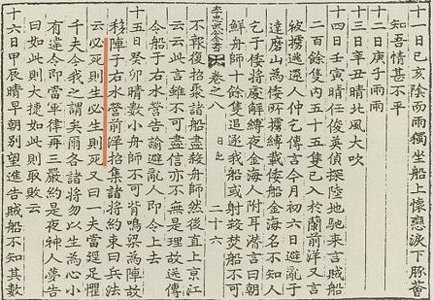 十一日己亥陰而雨獨坐船上懷戀淚下豚薈
知吾情甚不平
十二日庚子雨雨
十三日辛丑晴北風大吹
十四日壬寅晴任俊英偵探陸地馳來言賊船
二百餘隻內五十五隻已入於蘭前洋又言
被擄逃還人仲乞傳言今月初六日避亂于
達磨山為倭所擄縛載倭船金海名不知人
乞于倭將處解縛夜金海人附耳潛言曰朝
鮮舟師十餘隻追逐我船或射殺焚船不可
李忠武公全書 卷之八 日記 二十六
不報復招聚諸船盡殺舟師然後直上京江
云云此言雖不可盡信亦不無是理故送傳
令船于右水營告諭避亂人即令上去
十五日癸卯晴數小舟師不可背鳴梁為陣故
移陣于右水營前洋招集諸將約束曰兵法
云必死則生必生則死又曰一夫當逕足懼
千夫今我之謂矣爾各諸將勿以生為心小
有違令即當軍律再三嚴約是夜神人夢告
曰如此則大捷如此則取敗云
十六日甲辰晴早朝別望進告賊船不知其數